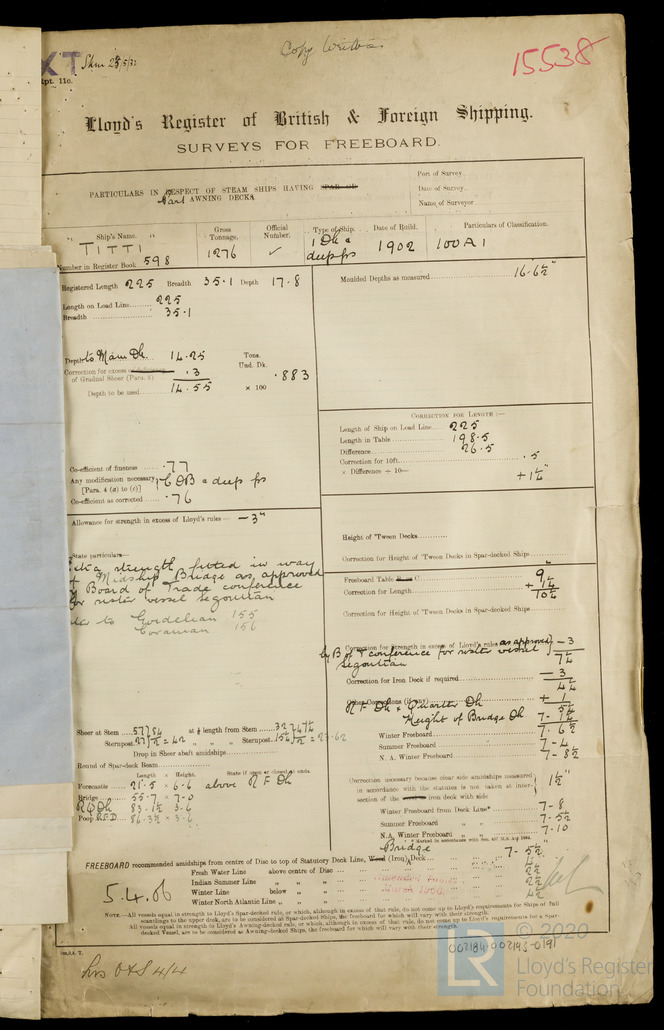 Copy Written
15538
Rpt. 11c.
Lloyd's Register of British & Foreign Shipping.
SURVEYS FOR FREEBOARD.
PARTICULARS IN RESPECT OF STEAM SHIPS HAVING SPAR OR
Part AWNING DECKS
Port of Survey
Date of Survey
Name of Surveyor
Ship's Name. Gross Tonnage. Official Number. Type of Ship. Date of Build. Particulars of Classification.
TITTI 1276 ✓ 1 Dk & deep frs 1902 100A1
Number in Register Book 598
Registered Length 225 Breadth 35.1 Depth 17.8
Length on Load Line 225
Breadth 35.1
Depth to Main Dk. 14.25
Correction for excess
of Gradual Sheer (Para. 8) .3
Depth to be used 14.55
Tons.
Und. Dk.
.883
× 100
Co-efficient of fineness .77
Any modification necessary
[Para. 4 (a) to (e)] CDB & deep frs
Co-efficient as corrected .76
Allowance for strength in excess of Lloyd's rules — -3"
State particulars—
strength fitted in way
Midship Bridge as approved
Board of Trade conference
for sister vessel Segontian
to Gordelian 155
Coranian 156
Sheer at Stem at ⅛ length from Stem
Sternpost = 42 " " " Sternpost = 23.62
Drop in Sheer abaft amidships
Round of Spar-deck Beam
Length × Height. State if open or closed at ends.
Forecastle 21.5 × 6.6 above R F Dk
Bridge 55.7 × 7.0
R Q Dk 83.1½ 3.6
Poop R.F.D. 86.3½ × 3.6
Moulded Depths as measured 16.6½"
CORRECTION FOR LENGTH :—
Length of Ship on Load Line 225
Length in Table 198.5
Difference 26.5
Correction for 10ft. .5
× Difference ÷ 10— +1¼"
Height of 'Tween Decks
Correction for Height of 'Tween Decks in Spar-decked Ships
Freeboard Table C 9
Correction for Length + 1¼
10¼
Correction for Height of 'Tween Decks in Spar-decked Ships
Correction for strength in excess of Lloyd's rules as approved -3
by B of T conference for sister vessel 7¼
Segontian
Correction for Iron Deck if required -3
4¼
Other Corrections (if any) + 1
R F Dk & Quarter Dk 5¼
Height of Bridge Dk 7-1¼
Winter Freeboard 7-6½
Summer Freeboard 7-4
N. A. Winter Freeboard 7-8½
Correction necessary because clear side amidships measured
in accordance with the statutes is not taken at inter-
section of the iron deck with side 1½"
Winter Freeboard from Deck Line* 7-8
Summer Freeboard " " 7-5½
N.A. Winter Freeboard " " 7-10
Bridge
FREEBOARD recommended amidships from centre of Disc to top of Statutory Deck Line, Wood (Iron) Deck 7-5½
Fresh Water Line above centre of Disc
Indian Summer Line " "
Winter Line below "
Winter North Atlantic Line " "
5.4.06
NOTE.—All vessels equal in strength to Lloyd's Spar-decked rule, or which, although in excess of that rule, do not come up to Lloyd's requirements for Ships of full
scantlings to the upper deck, are to be considered as Spar-decked Ships, the freeboard for which will vary with their strength.
All vessels equal in strength to Lloyd's Awning-decked rule, or which, although in excess of that rule, do not come up to Lloyd's requirements for a Spar-
decked Vessel, are to be considered as Awning-decked Ships, the freeboard for which will vary with their strength.
002184-002193-0191
© 2020
LR
Lloyd's Register
Foundation